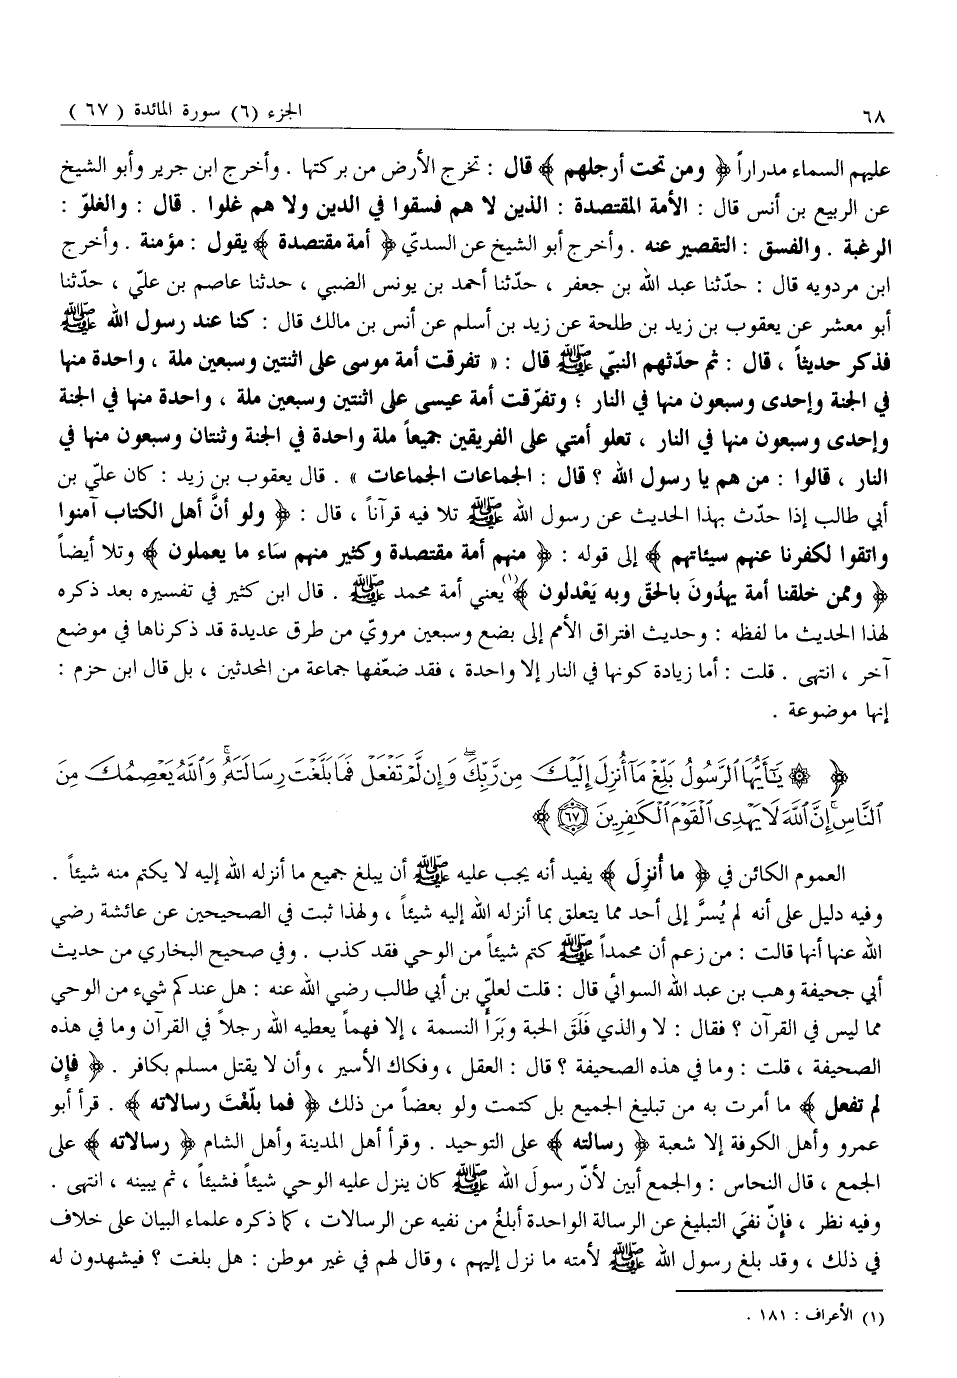 ٦٨
الجزء (٦) سورة المائدة ( ٦٧ )
عليهم السماء مدراراً ﴿ ومن تحت أرجلهم ﴾ قال : تخرج الأرض من بركتها . وأخرج ابن جرير وأبو الشيخ
عن الربيع بن أنس قال : الأمة المقتصدة : الذين لا هم فسقوا في الدين ولا هم غلوا . قال : والغلوّ :
الرغبة . والفسق : التقصير عنه . وأخرج أبو الشيخ عن السديّ ﴿ أمة مقتصدة ﴾ يقول : مؤمنة . وأخرج
ابن مردويه قال : حدّثنا عبد الله بن جعفر ، حدّثنا أحمد بن يونس الضبي ، حدثنا عاصم بن عليّ ، حدّثنا
أبو معشر عن يعقوب بن زيد بن طلحة عن زيد بن أسلم عن أنس بن مالك قال : كنا عند رسول الله ﷺ
فذكر حديثاً ، قال : ثم حدّثهم النبيّ ﷺ قال : « تفرقت أمة موسى على اثنتين وسبعين ملة ، واحدة منها
في الجنة وإحدى وسبعون منها في النار ؛ وتفرّقت أمة عيسى على اثنتين وسبعين ملة ، واحدة منها في الجنة
وإحدى وسبعون منها في النار ، تعلو أمتي على الفريقين جميعاً ملة واحدة في الجنة وثنتان وسبعون منها في
النار ، قالوا : من هم يا رسول الله ؟ قال : الجماعات الجماعات » . قال يعقوب بن زيد : كان عليّ بن
أبي طالب إذا حدّث بهذا الحديث عن رسول الله ﷺ تلا فيه قرآناً ، قال : ﴿ ولو أنَّ أهل الكتاب آمنوا
واتقوا لكفرنا عنهم سيئاتهم ﴾ إلى قوله : ﴿ منهم أمة مقتصدة وكثير منهم سَاء ما يعملون ﴾ وتلا أيضاً
﴿ وممن خلقنا أمة يهدُونَ بالحقّ وبه يَعْدلون ﴾(١) يعني أمة محمد ﷺ . قال ابن كثير في تفسيره بعد ذكره
لهذا الحديث ما لفظه : وحديث افتراق الأمم إلى بضع وسبعين مرويّ من طرق عديدة قد ذكرناها في موضع
آخر ، انتهى . قلت : أما زيادة كونها في النار إلا واحدة ، فقد ضعّفها جماعة من المحدثين ، بل قال ابن حزم :
إنها موضوعة .
﴿ ۞ يَٰٓأَيُّهَا ٱلرَّسُولُ بَلِّغْ مَآ أُنزِلَ إِلَيْكَ مِن رَّبِّكَۖ وَإِن لَّمْ تَفْعَلْ فَمَا بَلَّغْتَ رِسَالَتَهُۥۚ وَٱللَّهُ يَعْصِمُكَ مِنَ
ٱلنَّاسِۗ إِنَّ ٱللَّهَ لَا يَهْدِى ٱلْقَوْمَ ٱلْكَٰفِرِينَ ٦٧ ﴾
العموم الكائن في ﴿ ما أُنزِلَ ﴾ يفيد أنه يجب عليه ﷺ أن يبلغ جميع ما أنزله الله إليه لا يكتم منه شيئاً .
وفيه دليل على أنه لم يُسرَّ إلى أحد مما يتعلق بما أنزله الله إليه شيئاً ، ولهذا ثبت في الصحيحين عن عائشة رضي
الله عنها أنها قالت : من زعم أن محمداً ﷺ كتم شيئاً من الوحي فقد كذب . وفي صحيح البخاري من حديث
أبي جحيفة وهب بن عبد الله السوائي قال : قلت لعليّ بن أبي طالب رضي الله عنه : هل عندكم شيء من الوحي
مما ليس في القرآن ؟ فقال : لا والذي فَلَقَ الحبة وبَرَأَ النسمة ، إلا فهماً يعطيه الله رجلاً في القرآن وما في هذه
الصحيفة ، قلت : وما في هذه الصحيفة ؟ قال : العقل ، وفكاك الأسير ، وأن لا يقتل مسلم بكافر . ﴿ فإن
لم تفعل ﴾ ما أمرت به من تبليغ الجميع بل كتمت ولو بعضاً من ذلك ﴿ فما بلّغْتَ رسالاته ﴾ . قرأ أبو
عمرو وأهل الكوفة إلا شعبة ﴿ رسالته ﴾ على التوحيد . وقرأ أهل المدينة وأهل الشام ﴿ رسالاته ﴾ على
الجمع ، قال النحاس : والجمع أبين لأنّ رسولَ الله ﷺ كان ينزل عليه الوحي شيئاً فشيئاً ، ثم يبينه ، انتهى .
وفيه نظر ، فإنّ نفيَ التبليغ عن الرسالة الواحدة أبلغُ من نفيه عن الرسالات ، كما ذكره علماء البيان على خلاف
في ذلك ، وقد بلغ رسول الله ﷺ لأمته ما نزل إليهم ، وقال لهم في غير موطن : هل بلغت ؟ فيشهدون له
(١) الأعراف : ١٨١ .